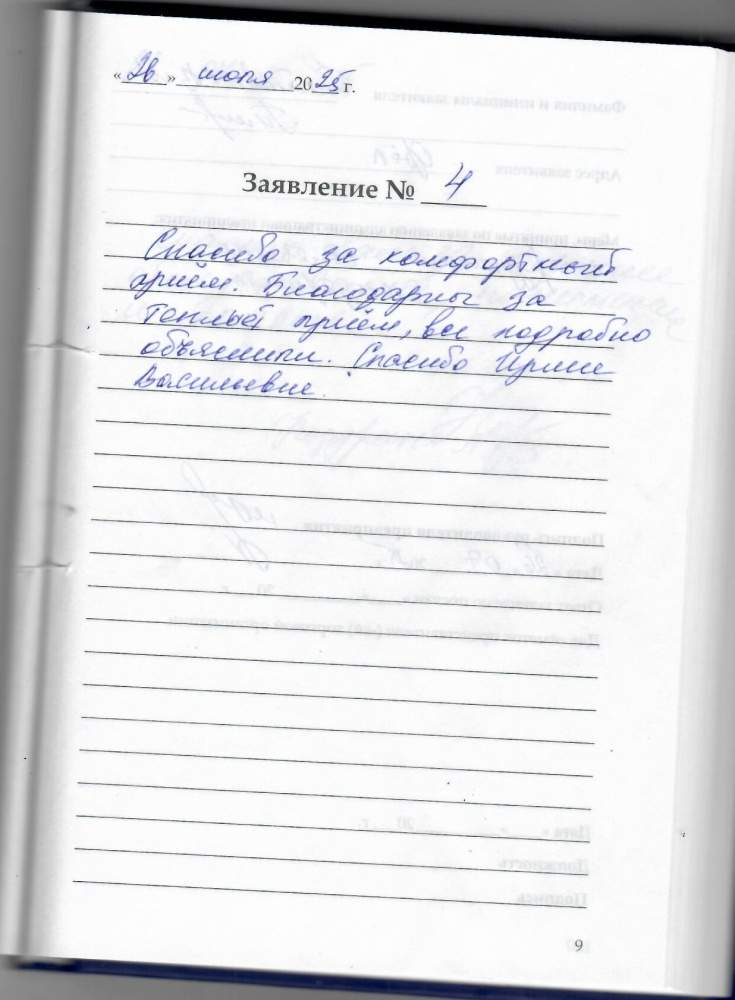 «26» июля 2025 г.
Заявление № 4
Спасибо за комфортный
приём. Благодарны за
теплый приём, все подробно
объяснили. Спасибо Ирине
Васильевне.
9